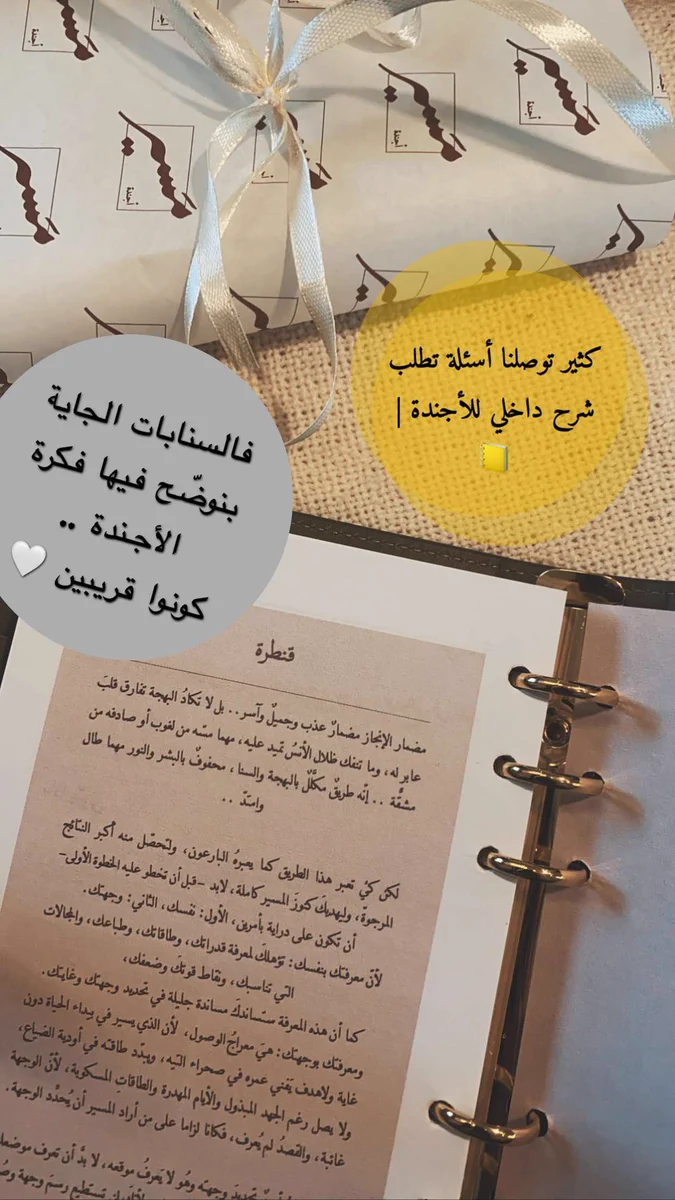 كثير توصلنا أسئلة تطلب
شرح داخلي للأجندة |
فالسنابات الجاية
بنوضّح فيها فكرة
الأجندة ..
كونوا قريبين
قنطرة
مضمار الإنجاز مضمارٌ عذب وجميلٌ وآسر.. بل لا تكادُ البهجة تفارق قلبَ
عابر له، وما تنفك ظلال الأُنسُ تميد عليه، مهما مسّه من لغوب أو صادفه من
مشقَّة .. إنّه طريقٌ مكلَّلٌ بالبهجة والسنا، محفوفٌ بالبشر والنور مهما طال
وامتدّ ..
لكن كيْ تعبر هذا الطريق كما يعبرهُ البارعون، ولتحصّل منه أكبر النتائج
المرجوة، وليهديكَ كنوزَ المسير كاملة، لابد –قبل أن تخطو عليه الخطوة الأولى–
أن تكون على دراية بأمرين، الأول: نفسك، الثاني: وجهتك.
لأنّ معرفتك بنفسك: تؤهلكَ لمعرفة قدراتك، وطاقاتك، وطباعك، والمجالات
التي تناسبك، ونقاط قوتكَ وضعفك،
كما أن هذه المعرفة ستساندكَ مساندة جليلة في تحديد وجهتك وغايتك.
ومعرفتك بوجهتك: هيَ معراجُ الوصول، لأن الذي يسير في بيداء الحياة دون
غاية ولاهدف يَفني عمره في صحراء التيه، ويبدّد طاقته في أودية الضياع،
ولا يصل رغم الجهد المبذول والأيام المهدرة والطاقاتِ المسكوبة، لأنّ الوجهة
غائبة، والقصدُ لم يُعرف، فكانَ لزاما على من أراد المسير أن يُحدِّد الوجهة.
تحديدَ وجهته وهو لا يَعرفُ موقعه، لا بدَّ أن تعرف موضعك
تستطيع رسم وجهة